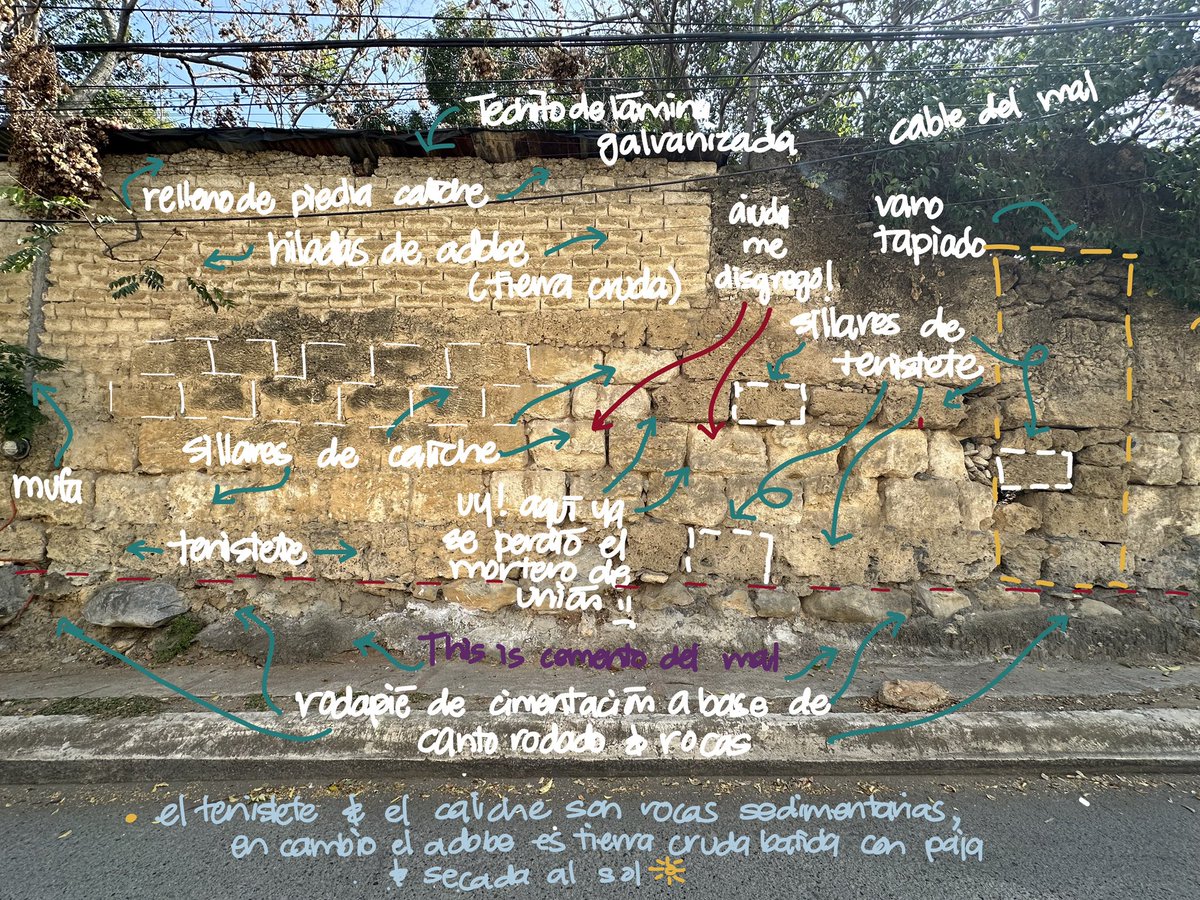 Techito de lámina
galvanizada
cable del mal
relleno de piedra caliche
hiladas de adobe
(tierra cruda)
aiuda
me
disgregó!
vano
tapiado
sillares de
tenistete
sillares de caliche
mufa
tenistete
uy! aquí ya
se perdió el
mortero de
unión
This is comento del mal
rodapié de cimentación a base de
canto rodado & rocas
el tenistete & el caliche son rocas sedimentarias,
en cambio el adobe es tierra cruda batida con paja
& secada al sol